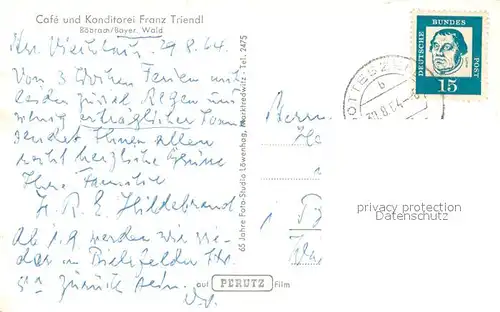 Café und Konditorei Franz Triendl
Böbrach/Bayer. Wald
29.8.64.
Von 3 Wochen Ferien mit
leider zuviel Regen und
wenig erträglicher Sonne
sendet Ihnen allen
recht herzliche Grüsse
Ihre Familie
H. R. E. Hildebrand
Ab 1.9 werden wir wie-
der in Bielefelder Str.
5a zurück sein.
65 Jahre Foto-Studio Löwenhag, Marktredwitz · Tel. 2475
auf PERUTZ Film
DEUTSCHE BUNDES POST
15
b
privacy protection
Datenschutz